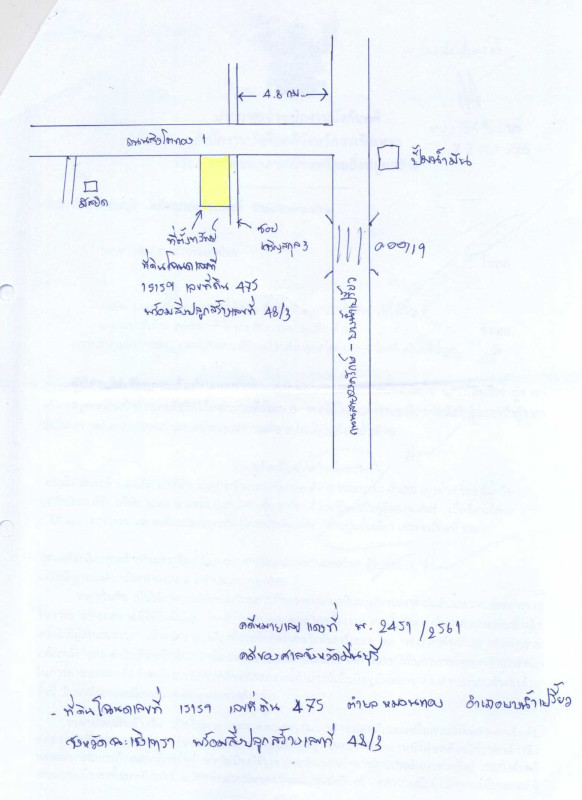 4.8 กม.
ปั๊มน้ำมัน
มัสยิด
ซอย
ที่ตั้งทรัพย์
เจริญสกุล 3
ที่ดินโฉนดเลขที่
15159 เลขที่ดิน 475
พร้อมสิ่งปลูกสร้างเลขที่ 48/3
คดีหมายเลขแดงที่ พ. 2451/2561
คดีของศาลจังหวัดมีนบุรี
- ที่ดินโฉนดเลขที่ 15159 เลขที่ดิน 475 ตำบลหมอนทอง อำเภอบางน้ำเปรี้ยว
จังหวัดฉะเชิงเทรา พร้อมสิ่งปลูกสร้างเลขที่ 48/3